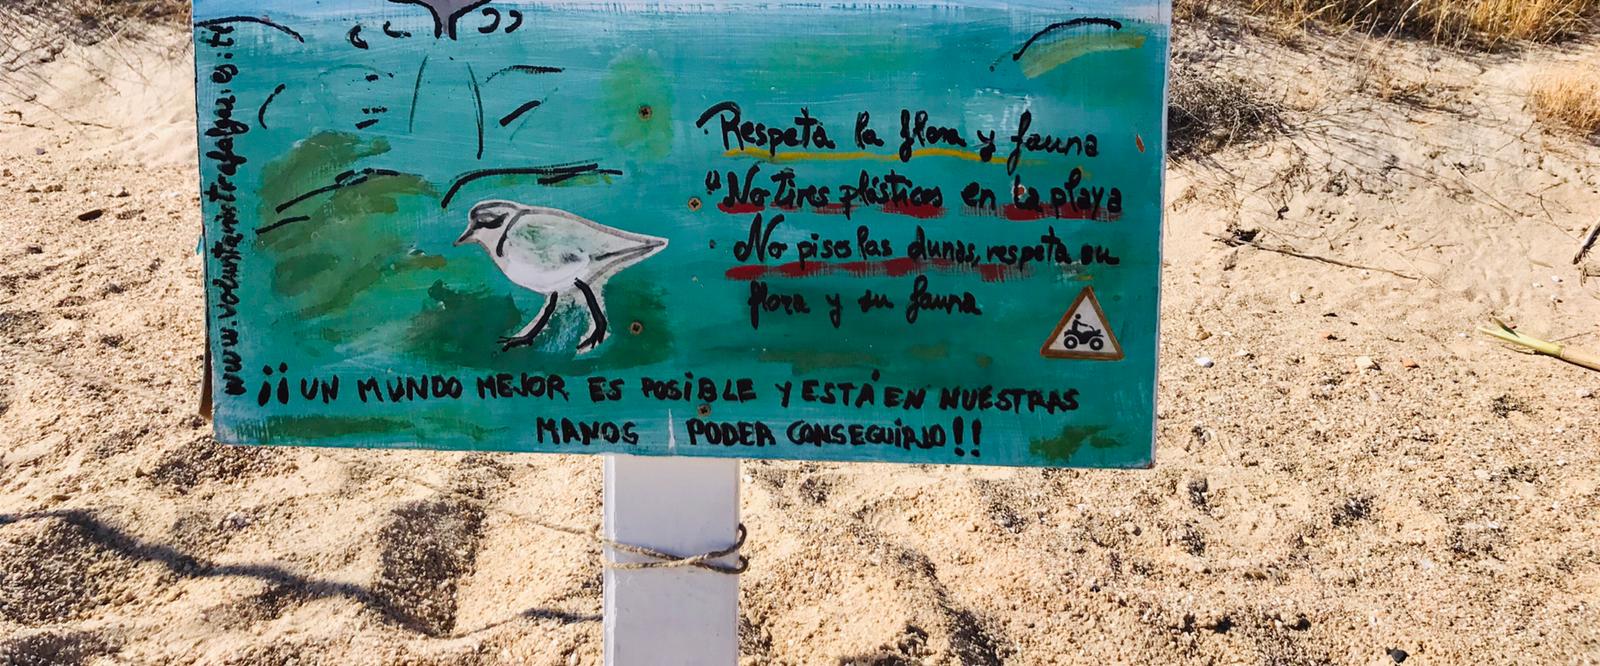 Respeta la flora y fauna
"No tires plásticos en la playa
No pises las dunas, respeta su
flora y su fauna
¡¡UN MUNDO MEJOR ES POSIBLE Y ESTÁ EN NUESTRAS
MANOS PODER CONSEGUIRLO!!